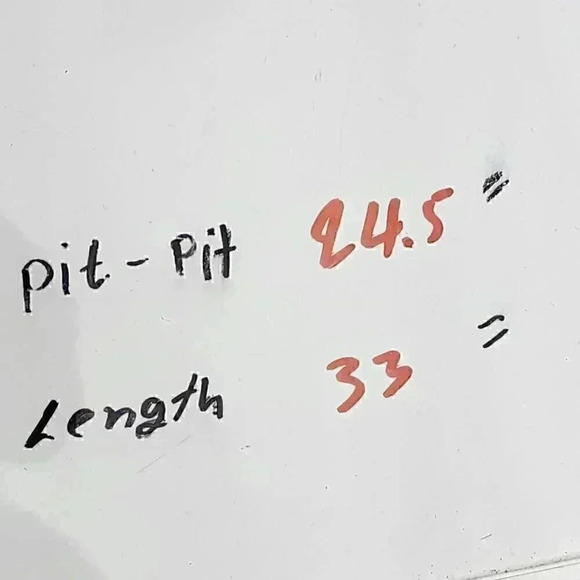 Pit - Pit 24.5"
Length 33"